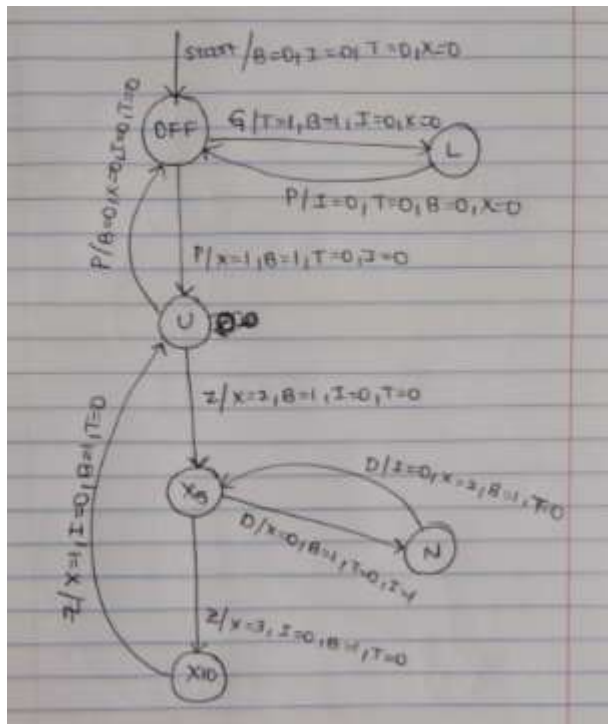 start/B=0,I=0,T=0,X=0
OFF
G/T=1,B=1,I=0,X=0
L
P/I=0,T=0,B=0,X=0
P/B=0,X=0,I=0,T=0
P/X=1,B=1,T=0,I=0
U
Z/X=2,B=1,I=0,T=0
D/I=0,X=2,B=1,T=0
X5
D/X=0,B=1,T=0,I=1
N
Z/X=1,I=0,B=1,T=0
Z/X=3,I=0,B=1,T=0
X10